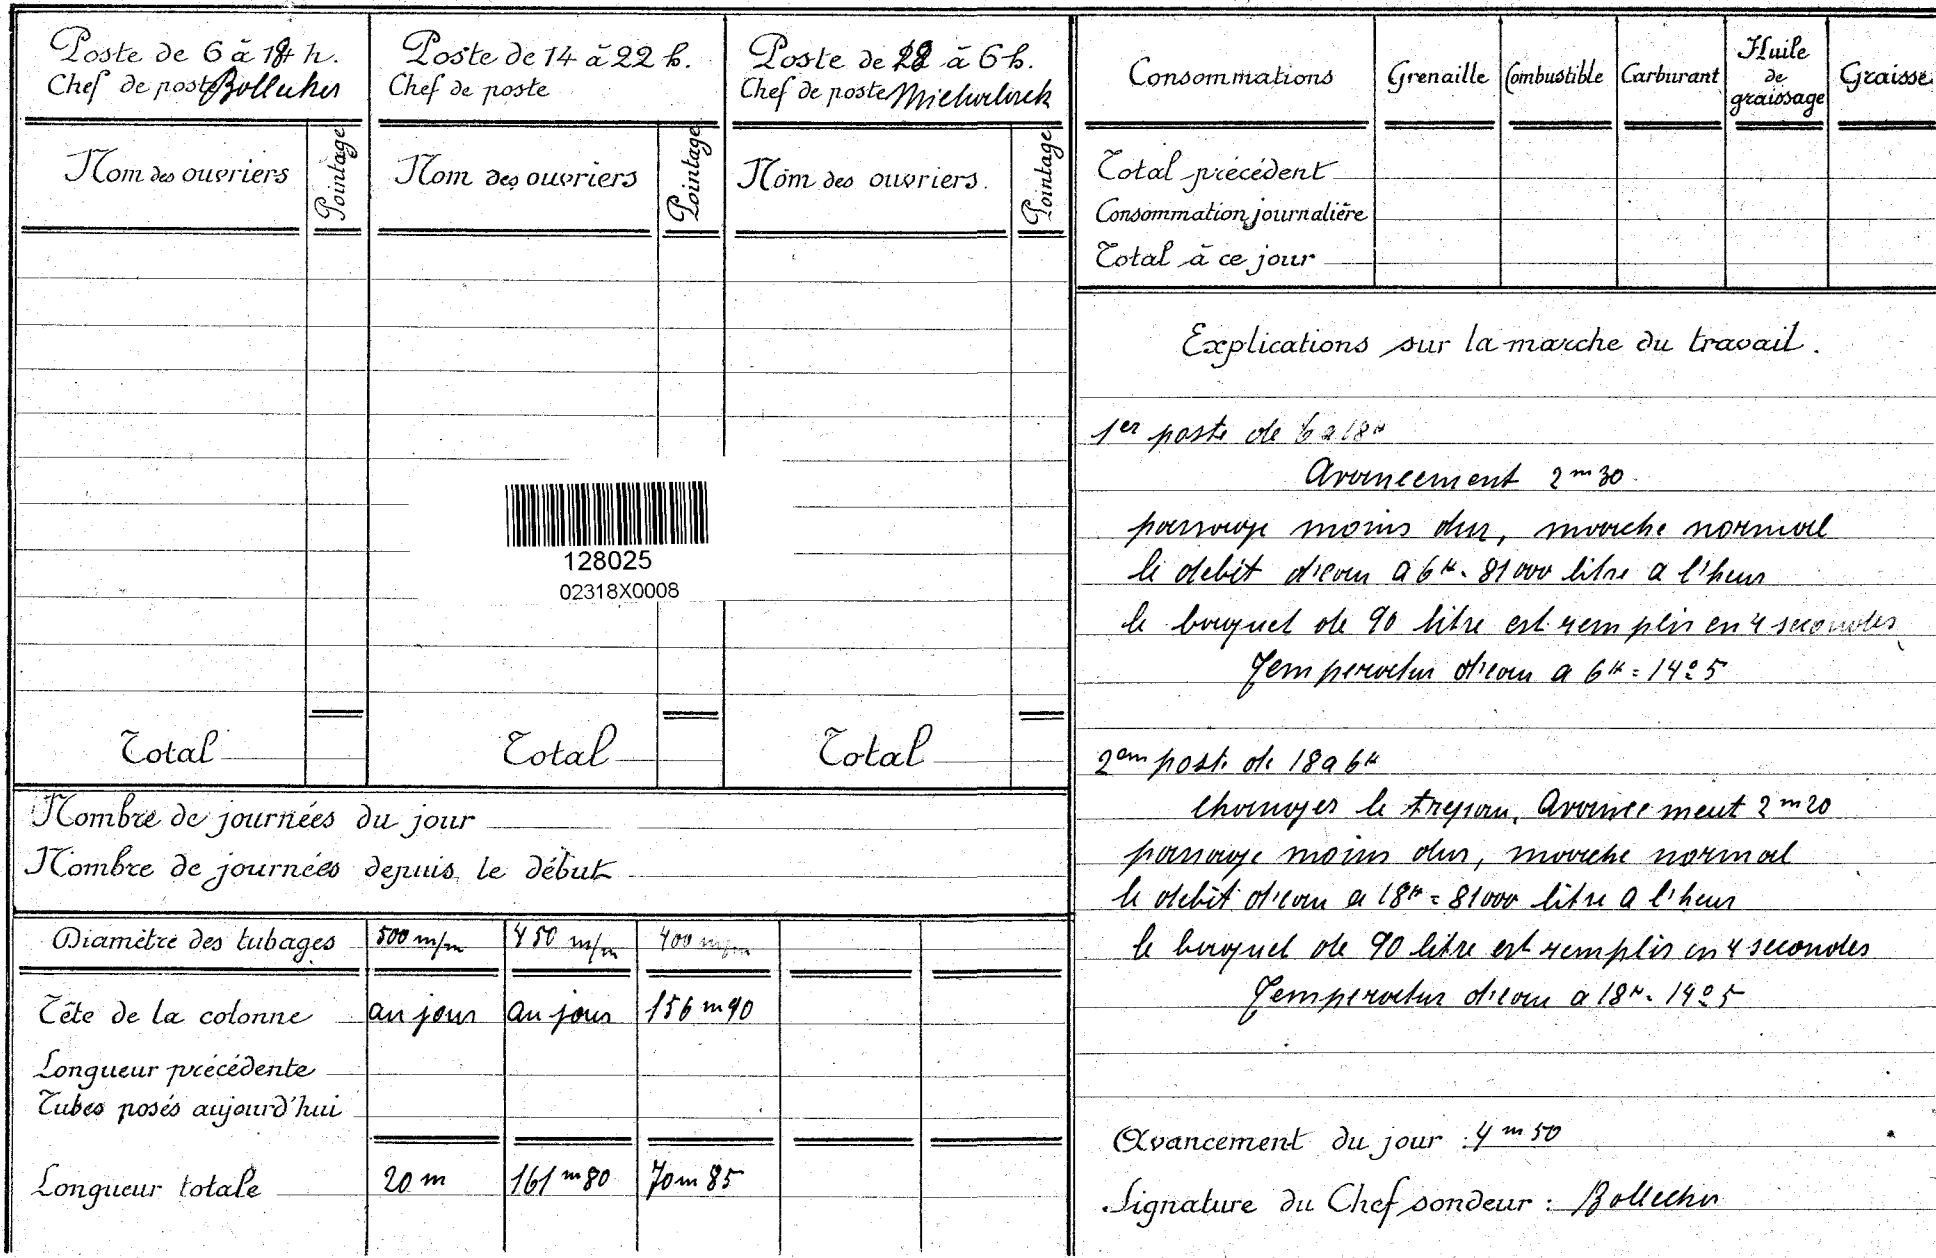 Poste de 6 à 18 h.
Chef de poste Bollecher
Poste de 14 à 22 h.
Chef de poste
Poste de 18 à 6 h.
Chef de poste
Nom des ouvriers
Pointage
Nom des ouvriers
Pointage
Nom des ouvriers.
Pointage
Total
Total
Total
128025
02318X0008
Nombre de journées du jour
Nombre de journées depuis le début
Diamètre des tubages 500 m/m 450 m/m 400 m/m
Tête de la colonne au jour au jour 156 m 90
Longueur précédente
Tubes posés aujourd'hui
Longueur totale 20 m 161 m 80 70 m 85
Consommations Grenaille Combustible Carburant Huile de graissage Graisse
Total précédent
Consommation journalière
Total à ce jour
Explications sur la marche du travail.
1er poste de 6 a 18 H
Avancement 2 m 30
passage moins dur, marche normal
le debit d'eau a 6 H = 81000 litre a l'heur
le baquet de 90 litre est remplis en 4 secondes
Temperatur d'eau a 6 H = 14°5
2em poste de 18 a 6 H
changer le trepan, Avancement 2 m 20
passage moins dur, marche normal
le debit d'eau a 18 H = 81000 litre a l'heur
le baquet de 90 litre est remplis en 4 secondes
Temperatur d'eau a 18 H = 14°5
Avancement du jour : 4 m 50
Signature du Chef sondeur : Bollecher